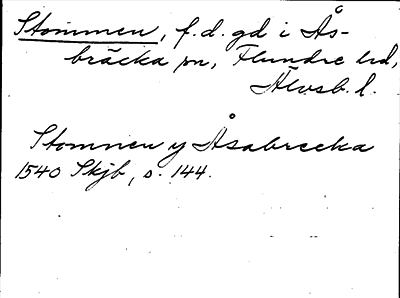 Stommen, f.d. gd i Ås-
bräcka sn, Flundre hd,
Älvsb. l.
Stomnen y Åsabrecka
1540 Skjb, s. 144.